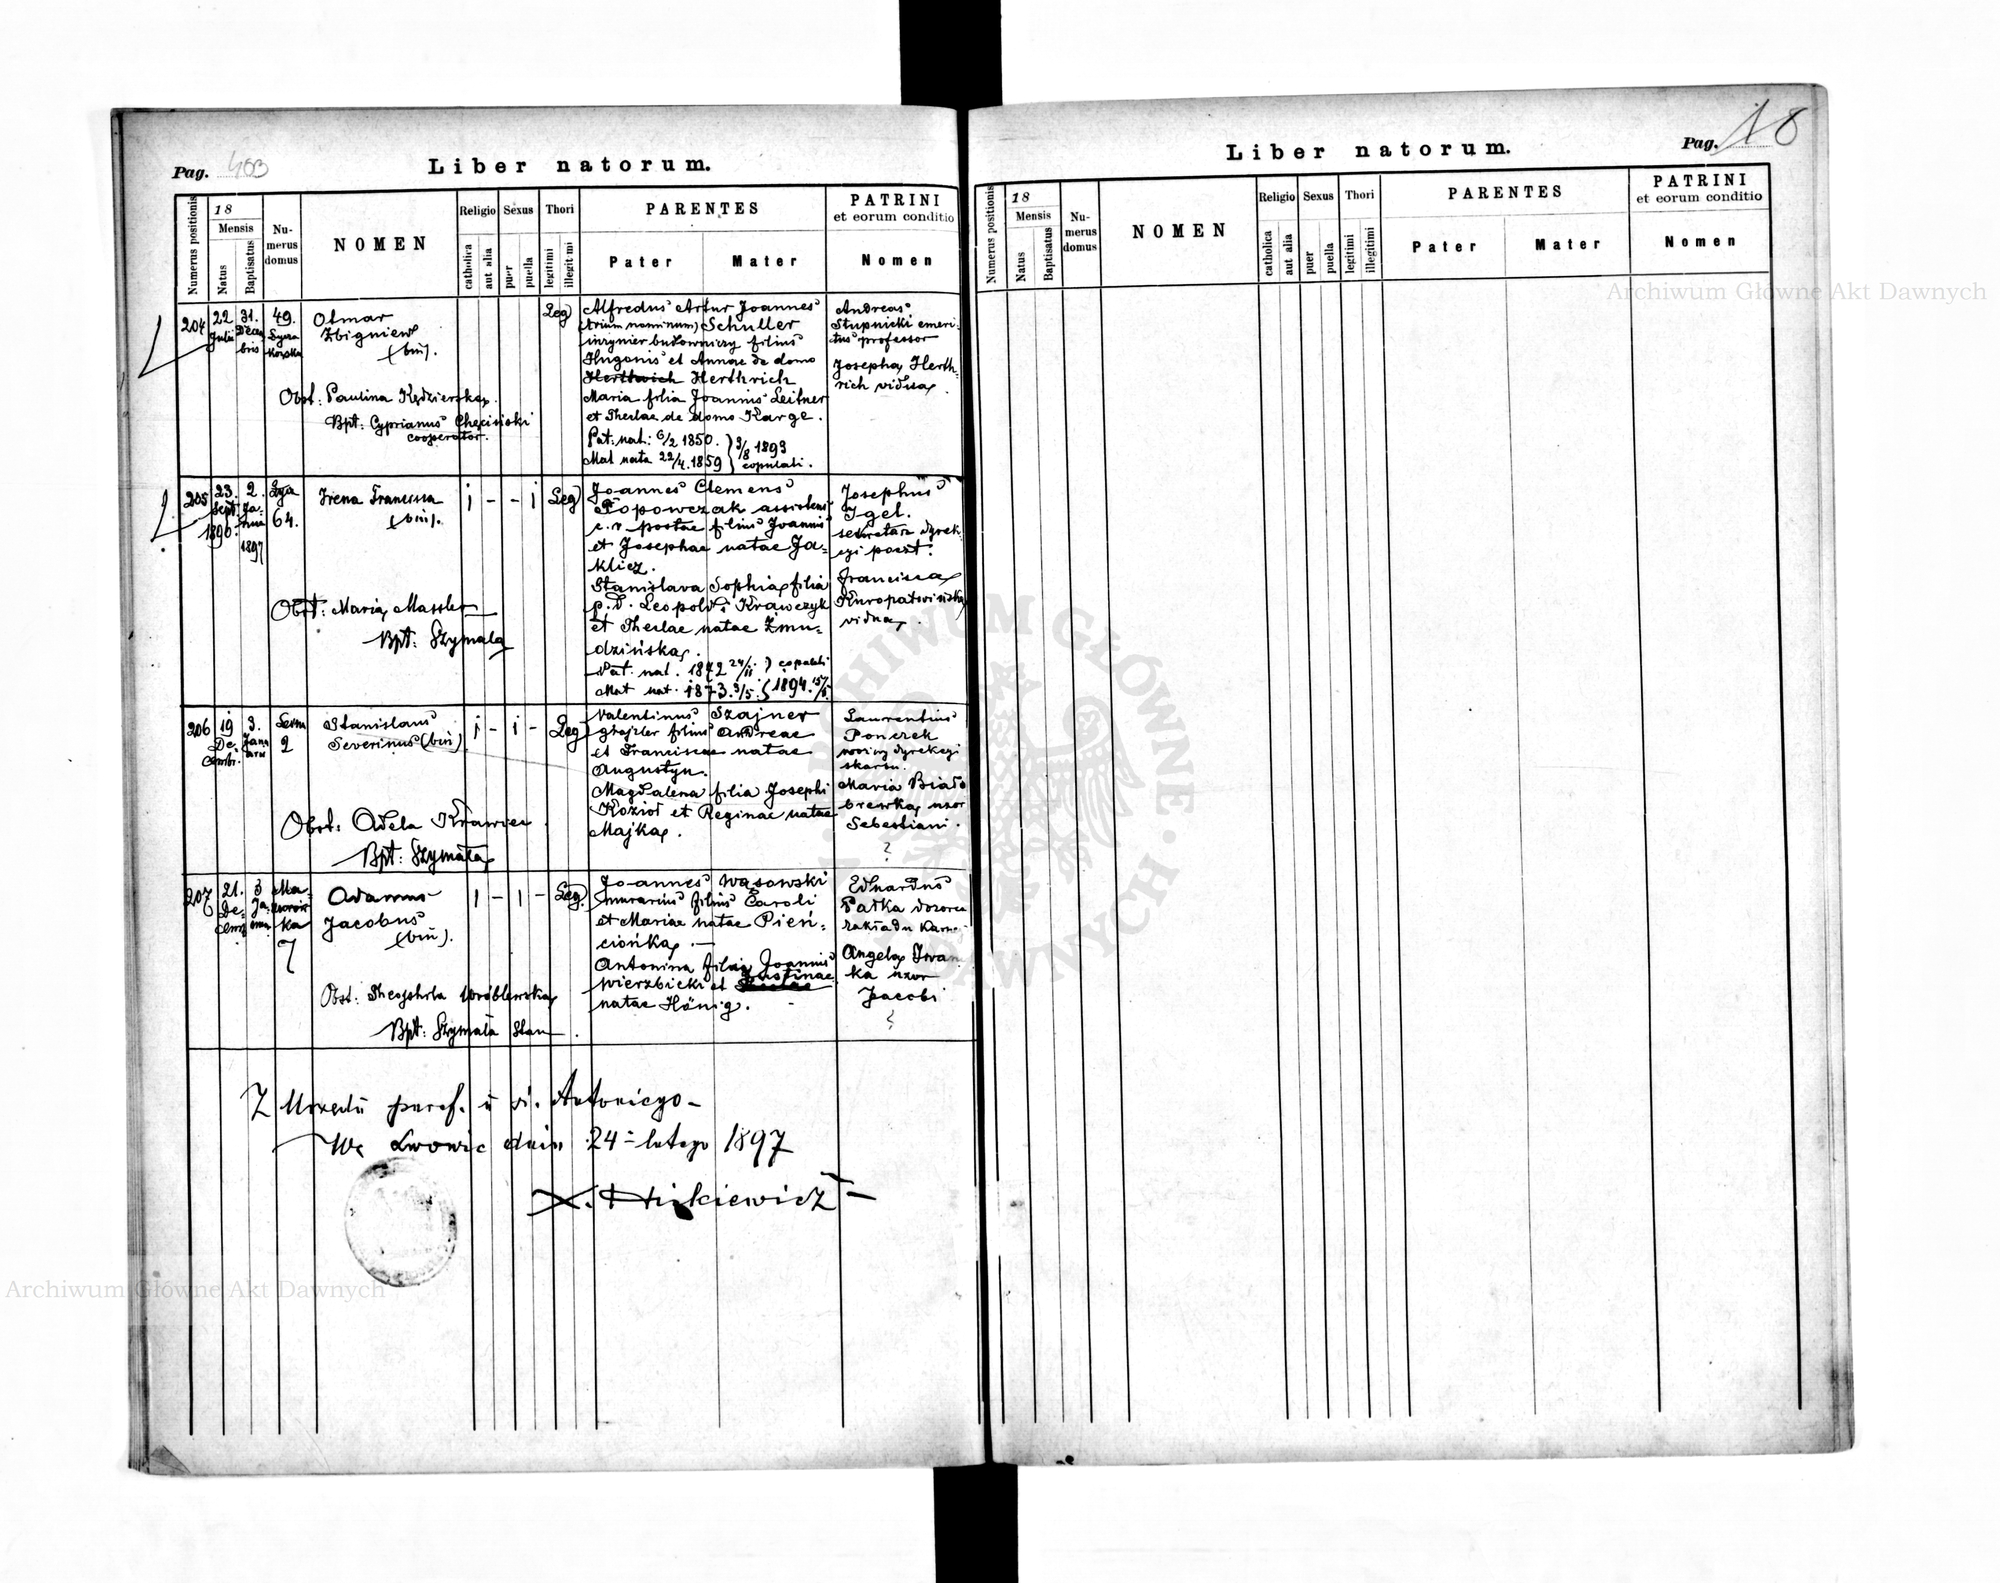 Pag. 403
Liber natorum.
Numerus positionis
18
Mensis
Natus
Baptisatus
Nu-
merus
domus
NOMEN
Religio
catholica
aut alia
Sexus
puer
puella
Thori
legitimi
illegitimi
PARENTES
Pater
Mater
PATRINI
et eorum conditio
Nomen
204
22
Julii
31.
Decem
bris
49.
Otmar
Zbigniew
(bin).
Obst: Paulina Kędzierska.
Bpt: Cyprianus Chęciński
cooperator.
Leg
Alfredus Artur Joannes
(trium nominum) Schuller
inżynier budowniczy filius
Hugonis et Annae de domo
Herthrich
Maria filia Joannis Leitner
et Theclae de domo Karge.
Pat: nat: 6/2 1850.
Mat nata 22/4. 1859
3/8 1893
copulati.
Andreas
Stupnicki emeri-
tus professor
Josepha Herth-
rich vidua
205
23.
Sept.
1896.
2.
Ja-
nua
1897
64.
Irena Francisca
(bin).
Obst: Maria Massler
Bpt: Szymala
1 - - 1 Leg
Joannes Clemens
Popowczak assistens
c. r. postae filius Joannis
et Josephae natae Ja-
klicz.
Stanislava Sophia filia
p. d. Leopoldi Krawczyk
et Theclae natae Żmu-
dzińska.
Pat. nat. 1872 24/11
Mat nat. 1873. 3/5.
copulati
1894.
Josephus
Igel.
sekretarz dyrek-
cyi poczt.
Francisca
Kuropatwińska
vidua.
206
19
De-
cembr.
3.
Janu
arii
2
Stanislaus
Severinus (bin)
Obst: Adela Krawiec.
Bpt: Szymala
1 - 1 - Leg
Valentinus Szajner
filius Andreae
et Franciscae natae
Augustyn.
Magdalena filia Josephi
Kozioł et Reginae natae
Majka.
Laurentius
Ponczek
woźny dyrekcyi
skarbu.
Maria Biało
brewka uxor
Sebestiani.
?
207
21.
De-
cemb
3
Ja-
7
Adamus
Jacobus
(bin).
Obst: Theophila Wróblewska
Bpt: Szymala Stan.
1 - 1 - Leg.
Joannes Wąsowski
murarius filius Caroli
et Mariae natae Pień-
cionka.
Antonina filia Joannis
Wierzbicki et Justinae
natae Hönig.
Eduardus
Pałka dozorca
zakładu karne-
Angela Iwan
ka uxor
Jacobi
Z Urzędu paraf. u św. Antoniego
We Lwowie dnia 24 lutego 1897
Pag. 18
Liber natorum.
Numerus positionis
18
Mensis
Natus
Baptisatus
Nu-
merus
domus
NOMEN
Religio
catholica
aut alia
Sexus
puer
puella
Thori
legitimi
illegitimi
PARENTES
Pater
Mater
PATRINI
et eorum conditio
Nomen
Archiwum Główne Akt Dawnych
ARCHIWUM GŁÓWNE AKT DAWNYCH
Archiwum Główne Akt Dawnych